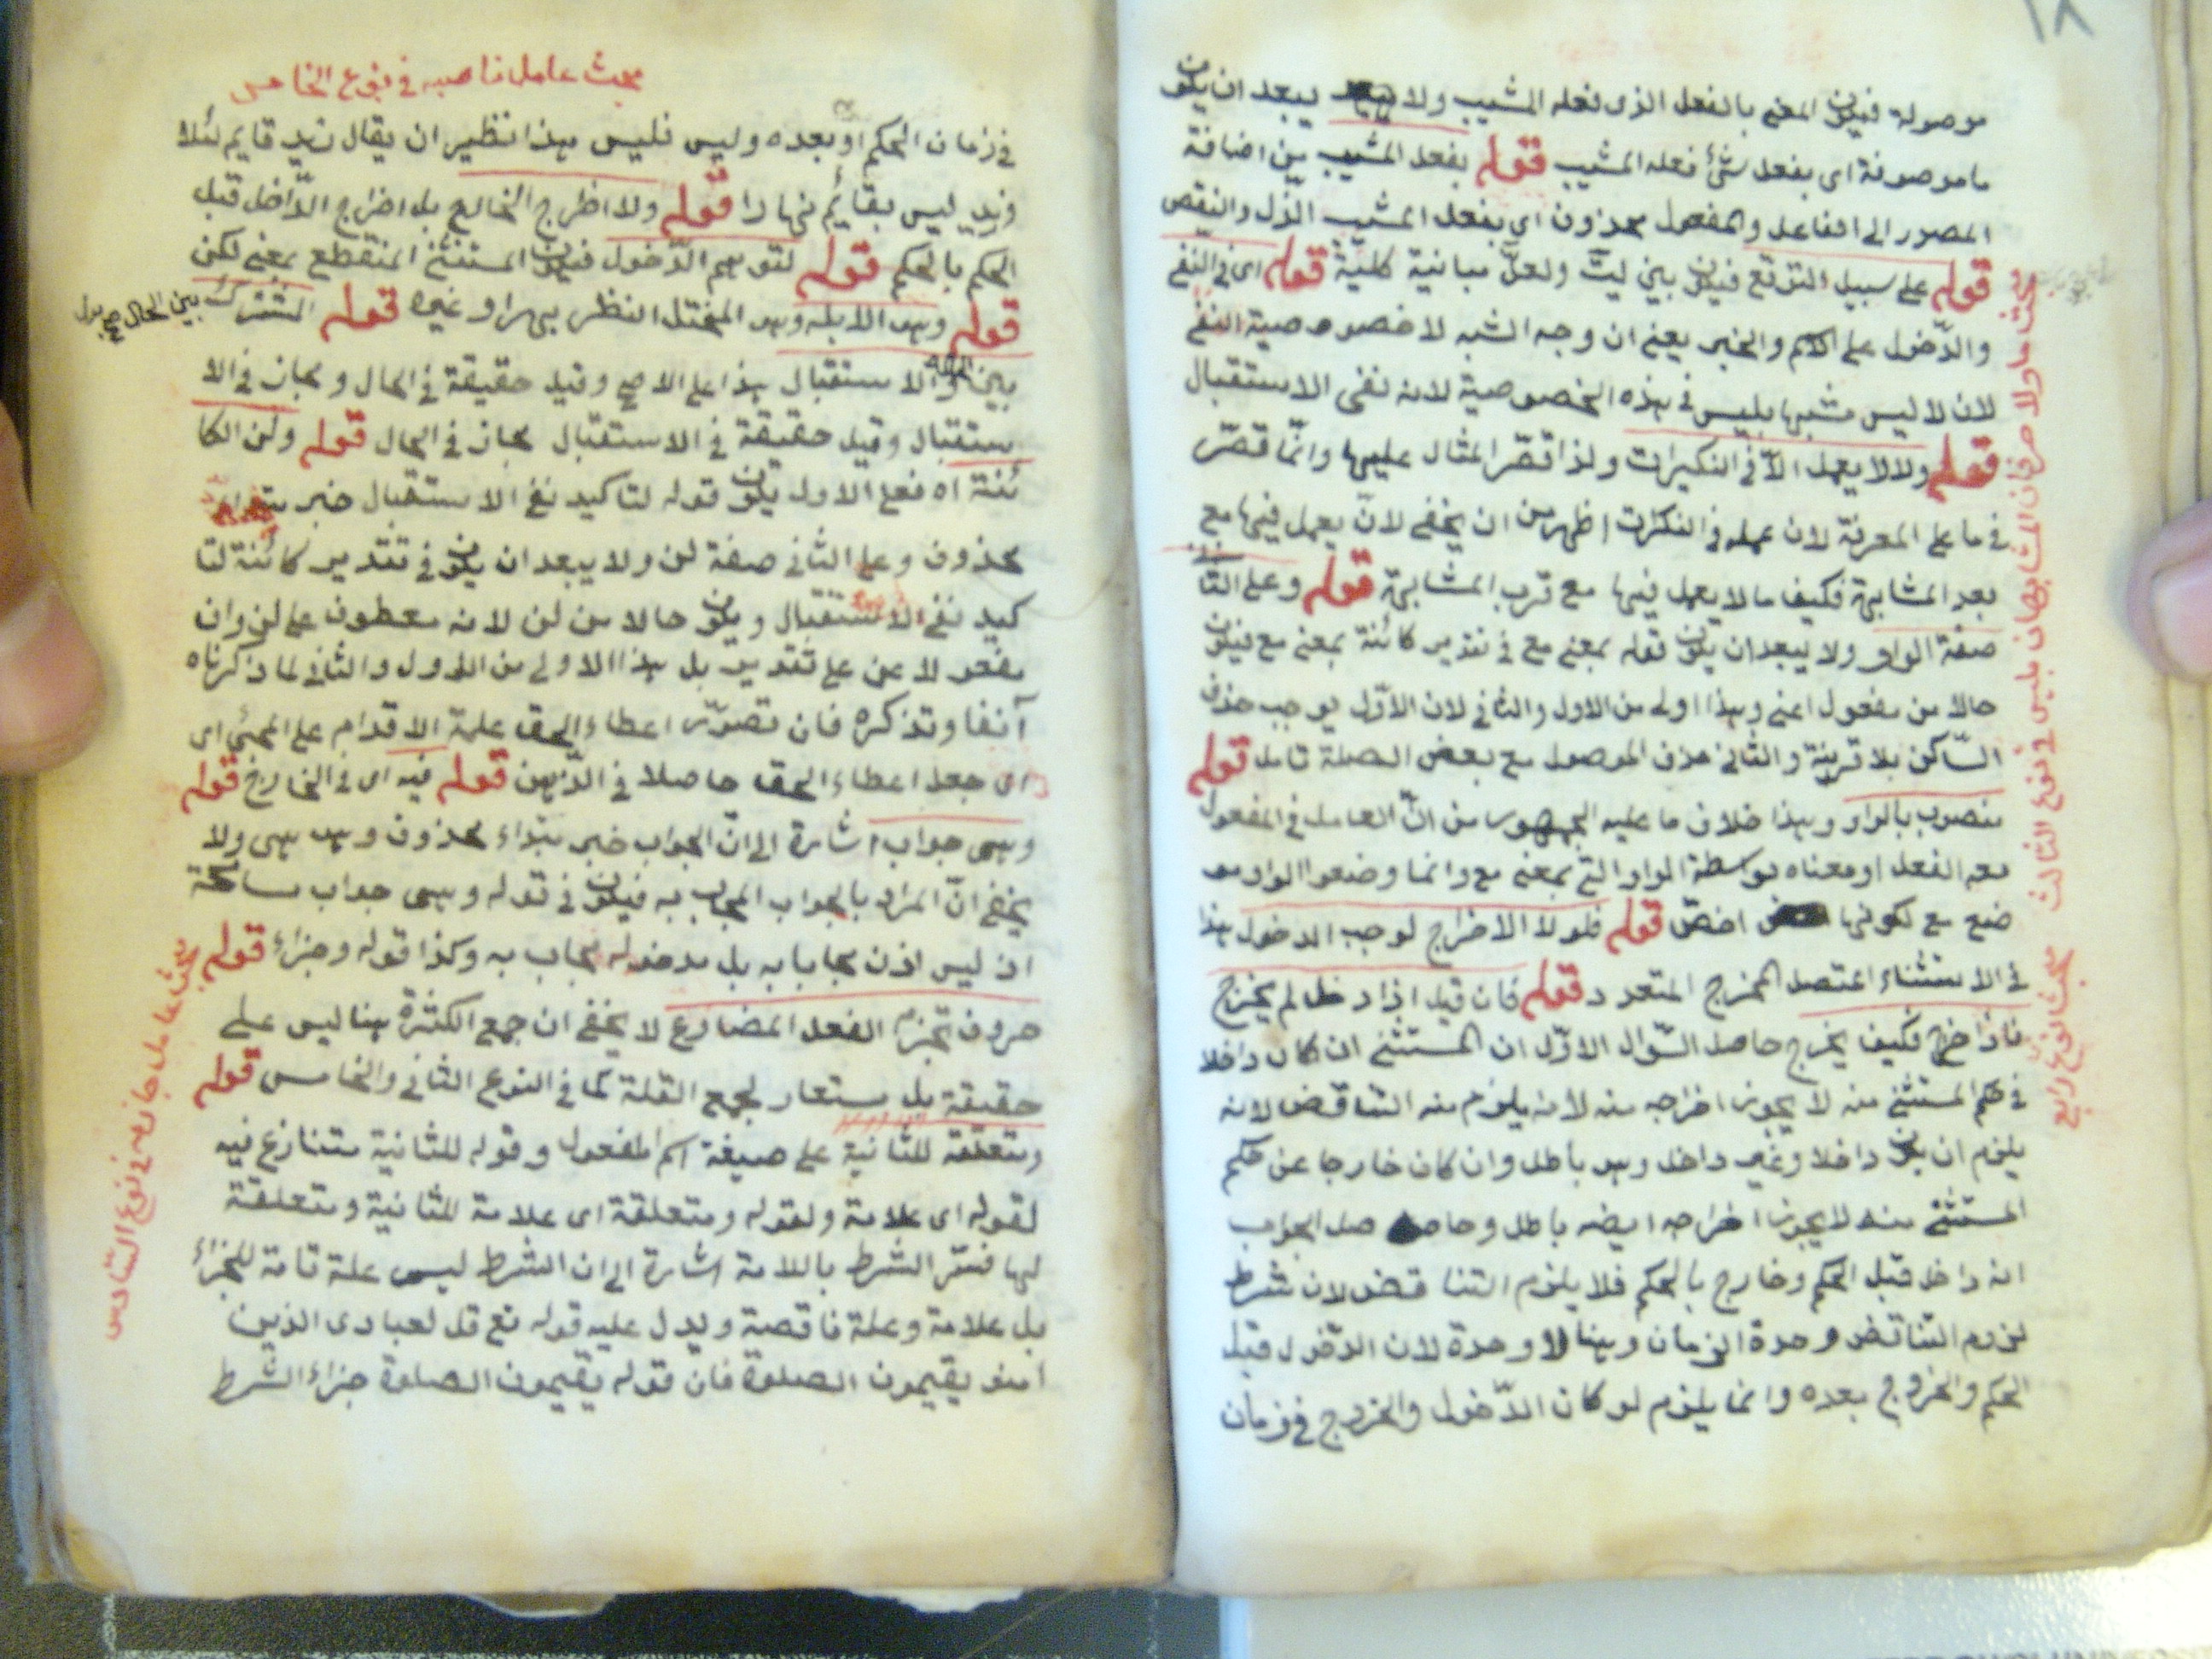 ١٨
موصولة فيكون المعنى بالفعل الذى فعله المشيب ولا يبعد ان يكون
ما موصوفة اى بفعل شئ فعله المشيب قوله بفعل المشيب من اضافة
المصدر الى الفاعل والمفعول محذوف اى بفعل المشيب الذل والنقص
قوله على سبيل التوقع فيكون بين ليت ولعل مباينة كلية قوله اى فى النفى
والدّخول على الاسم والخبر يعنى ان وجه الشبه لا خصوصية النفى
لان لا ليس مشبها بليس فى هذه الخصوصية لانه لنفى الاستقبال
قوله ولا لا يعمل الاّ فى النكرات ولذا قصّر المثال عليها وانّما قصّر
فى ما على المعرفة لان عمله فى النكرات اظهر من ان يخفى لانّ يعمل فيها مع
بعد المشابهة فكيف ما لا يعمل فيها مع قرب المشابهة قوله وعلى الثا
صفة الواو ولا يبعد ان يكون قوله بمعنى مع فى تقدير كائنة بمعنى مع فيكون
حالا من مفعول اعنى وهذا اولى من الاول والثانى لان الاوّل يوجب حذف
السّاكن بلا قرينة والثانى حذف الموصول مع بعض الصلة تامل قوله
منصوب بالواو وهذا خلاف ما عليه الجمهور من انّ العامل فى المفعول
معه الفعل او معناه بواسطة الواو التى بمعنى مع وانما وضعوا الواو مو
ضع مع لكونها اخصّ قوله فلولا الاخراج لوجب الدخول هذا
فى الاستثناء المتصل المخرج المتعدد قوله فان قيل اذا دخل لم يخرج
فاذا خرج فكيف يخرج حاصل السّؤال الاوّل ان المستثنى ان كان داخلا
فى حكم المستثنى منه لا يجوز اخراجه منه لانه يلزم منه التناقض لانه
يلزم ان يكون داخلا وغير داخل وهو باطل وان كان خارجا عن حكم
المستثنى منه لا يجوز اخراجه ايضه باطل وحاصل الجواب
انه داخل قبل الحكم وخارج بالحكم فلا يلزم التناقض لان شرط
لزوم التناقض وحدة الزمان وهنا لا وحدة لان الدّخول قبل
الحكم والخروج بعده وانما يلزم لو كان الدّخول والخروج فى زمان
مبحث ما ولا حرفان المشابهان بليس فى نوع الثالث
مبحث نوع رابع
مبحث عامل ناصبه فى نوع الخامس
فى زمان الحكم او بعده وليس فليس هذا نظير ان يقال زيد قايم ليلا
وزيد ليس بقائم نهارا قوله ولا اخراج الخارج بل اخراج الدّاخل قبل
الحكم بالحكم قوله لتوهم الدّخول فيكون المستثنى المنقطع بمعنى لكن
قوله وهو الابله وهو المختل النظر بهرا وغيره قوله المشترك بين الحال
بين والاستقبال هذا على الاصح وقيل حقيقة فى الحال ومجاز فى الا
ستقبال وقيل حقيقة فى الاستقبال مجاز فى الحال قوله ولن الكا
ئنة اه فعلى الاول يكون قوله لتاكيد نفى الاستقبال خبر مبتداء
محذوف وعلى الثانى صفة لن ولا يبعد ان يكون فى تقدير كائنة لتا
كيد نفى الاستقبال ويكون حالا من لن لانه معطوف على لن وان
مفعول لاعنى على تقدير بل هذا الاولى من الاول والثانى لما ذكرناه
آنفا وتذكره فان تصوّر اعطاء الحق علة الاقدام على المجئ اى
اى جعل اعطاء الحق حاصلا فى الذّهن قوله فيه اى فى الخارج قوله
وهى جواب اشارة الى انّ الجواب خبر مبتداء محذوف وهو هى ولا
يخفى انّ المراد بالجواب المجاب به فيكون فى قوله وهى جواب مسامحة
اذ ليس اذن مجابا به بل مدخوله مجاب به وكذا قوله وجزاء قوله
حروف تجزم الفعل المضارع لا يخفى ان جمع الكثرة هنا ليس على
حقيقة بل مستعار لجمع القلة كما فى النوع الثانى والخامس قوله
ومتعلقة للثانية على صيغة اسم المفعول وقوله للثانية متنازع فيه
لقوله اى علامة ولقوله ومتعلقة اى علامة للثانية ومتعلقة
لها فسّر الشرط بالامة اشارة الى ان الشرط ليس علة تامة للجزاء
بل علامة وعلة ناقصة ويدل عليه قوله تع قل لعبادى الذين
امنو يقيمون الصلوة فان قوله يقيمون الصلوة جزاء الشرط
مبحث عامل جازمه فى نوع السّادس